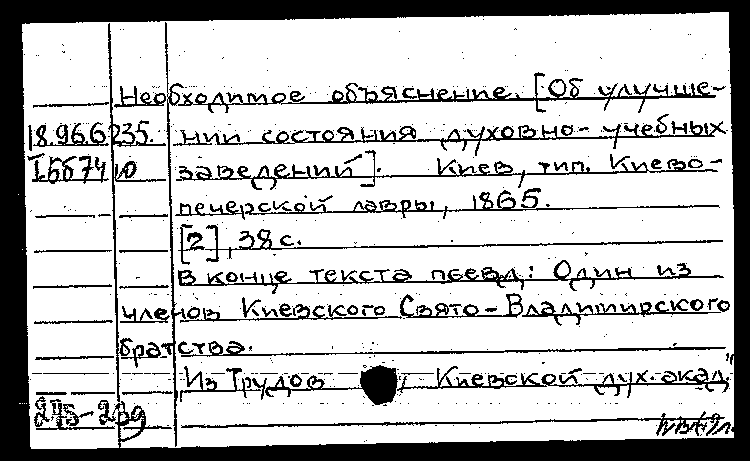 Необходимое объяснение. [Об улучше-
18.96.6235. нии состояния духовно-учебных
заведений]. Киев, тип. Киево-
печерской лавры, 1865.
[2], 38 с.
В конце текста псевд.: Один из
членов Киевского Свято-Владимирского
братства.
"Из Трудов Киевской дух. акад."